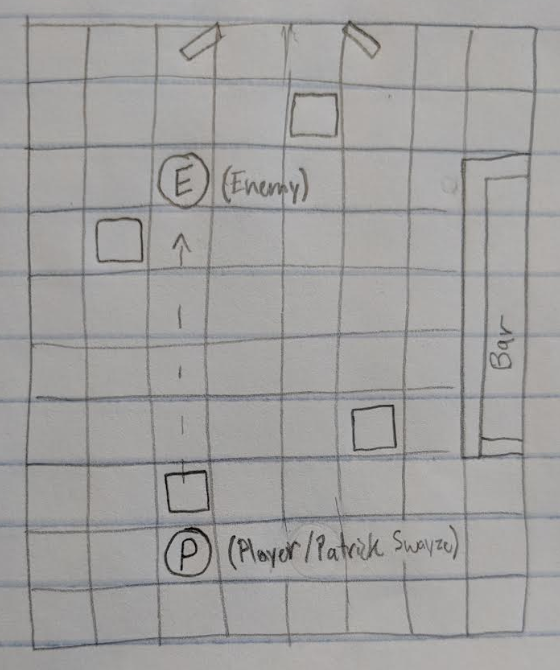 E (Enemy)
Bar
P (Player/Patrick Swayze)